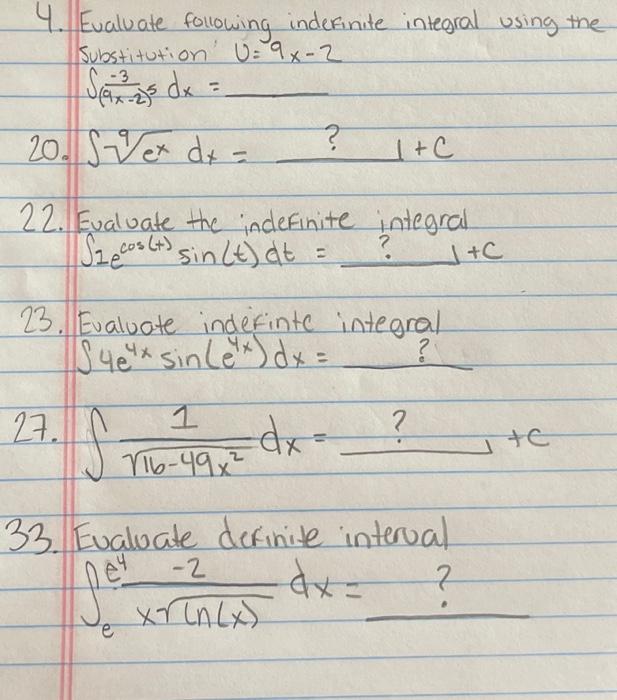 4. Evaluate following indefinite integral using the
substitution U=9x-2
∫ -3/(9x-2)^5 dx = ____
20. ∫ ⁹√e^x dx = ? + C
22. Evaluate the indefinite integral
∫ 2e^cos(t) sin(t) dt = ? + C
23. Evaluate indefinte integral
∫ 4e^4x sin(e^4x) dx = ?
27. ∫ 1/√16-49x² dx = ? + C
33. Evaluate definite interval
∫_e^e^4 -2/x√ln(x) dx = ?